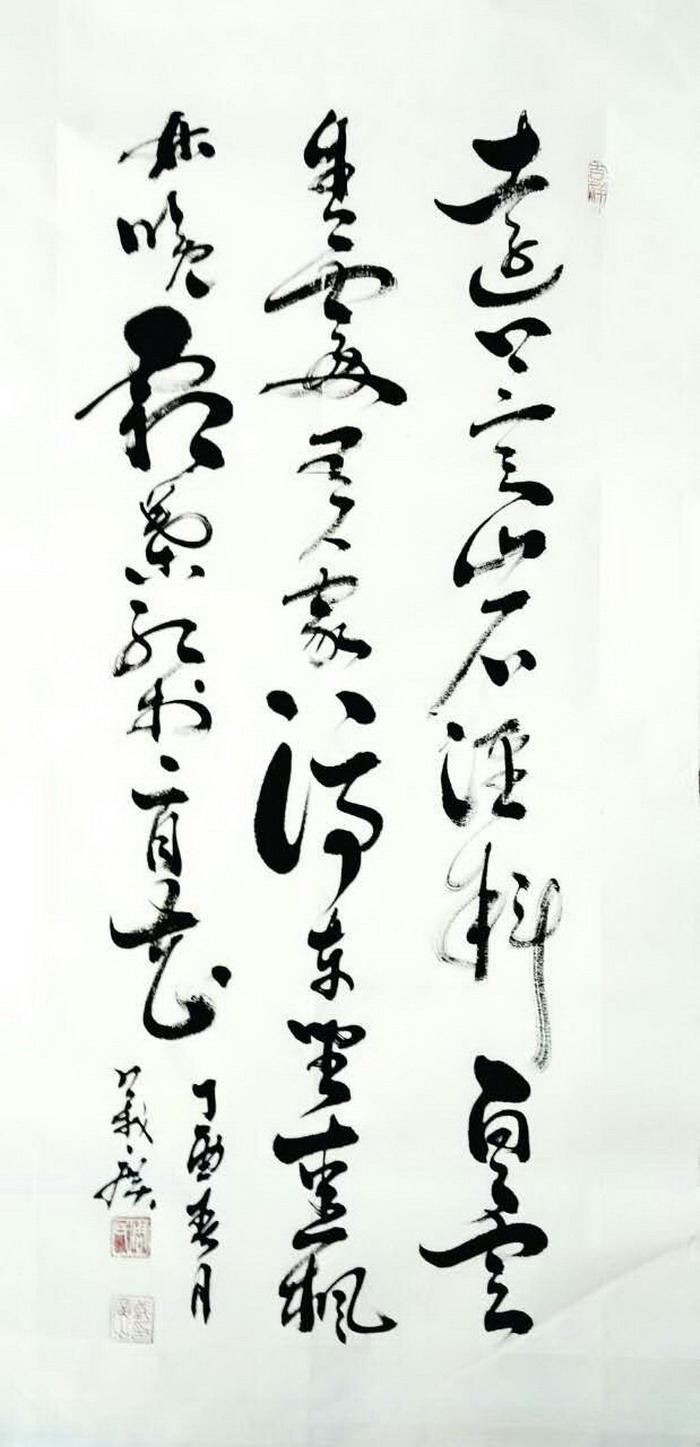 吉祥
遠上寒山石徑斜白雲
生處有人家停車坐愛楓
林晚霜葉紅於二月花
丁酉春月